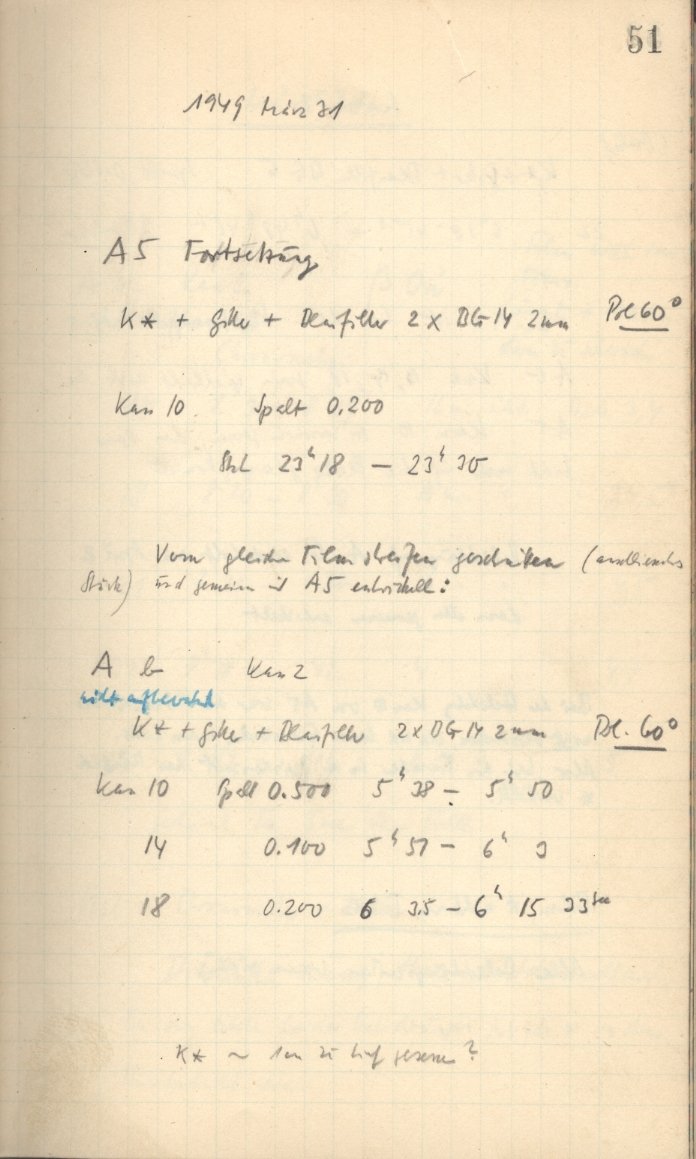 51
1949 März 31
A5 Fortsetzung
K* + Gitter + Blaufilter 2 x BG 14 2mm Pol 60°
Kan 10 Spalt 0.200
23ʰ 18 — 23ʰ 30
Vom gleichen Filmstreifen geschnitten (anschliessendes
Stück) und gemeinsam mit A5 entwickelt:
A 6 Kan 2
nicht aufbewahrt
K* + Gitter + Blaufilter 2 x BG 14 2mm Pol. 60°
Kan 10 Spalt 0.500 5ʰ 38 — 5ʰ 50
14 0.100 5ʰ 51 — 6ʰ 3
18 0.200 6 3.5 — 6ʰ 15
K* ~ 1 zu tief gesessen?